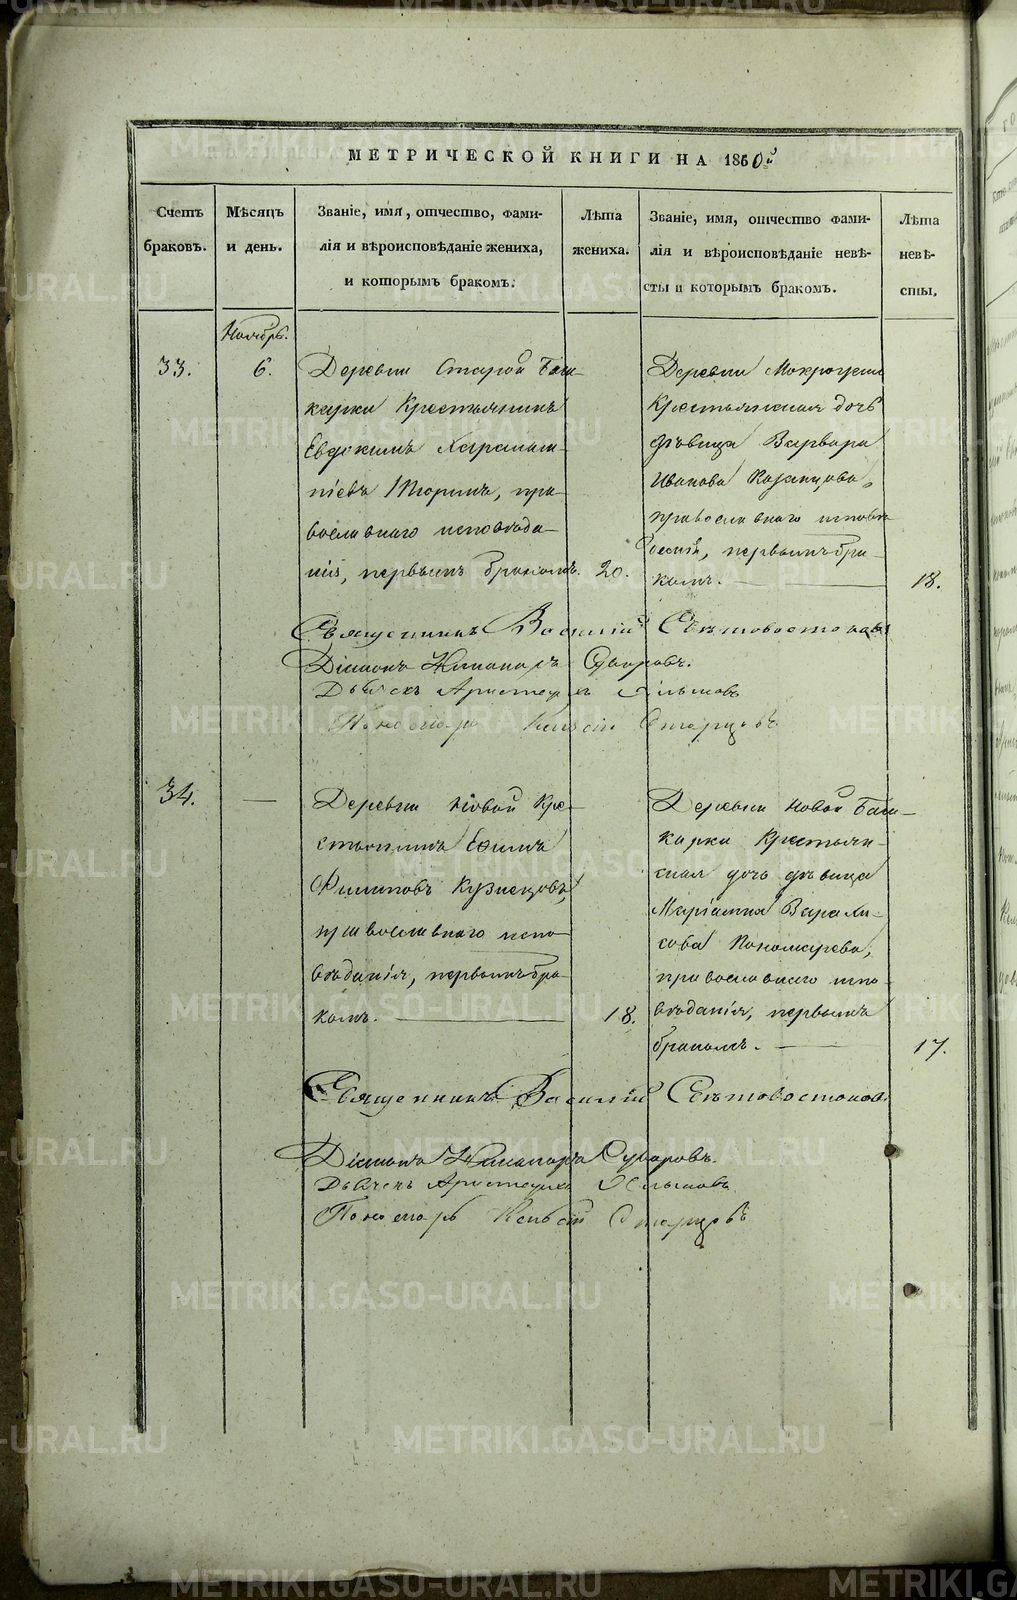 МЕТРИЧЕСКОЙ КНИГИ НА 1860й
Счетъ
браковъ.
Мѣсяцъ
и день.
Званіе, имя, отчество, фами-
лія и вѣроисповѣданіе жениха,
и которымъ бракомъ.
Лѣта
жениха.
Званіе, имя, отчество фами-
лія и вѣроисповѣданіе невѣ-
сты и которымъ бракомъ.
Лѣта
невѣ-
сты.
Ноябрь.
33.
6.
Деревни Старой Баш-
карки Крестьянинъ
Евдокимъ Харламп-
піевъ Тюринъ, пра-
вославнаго исповѣда-
нія, первымъ бракомъ.
20.
Деревни
Крестьянская дочь
дѣвица Варвара
Иванова Казанцова,
православнаго исповѣ-
данія, первымъ бра-
комъ.
18.
Священникъ Василій Свѣтовостоковъ
Діаконъ Никаноръ Суворовъ.
Дьячекъ
Пономарь Старцовъ
34.
—
Деревни Новой Кре-
стьянинъ Ефимъ
Филиповъ Кузнецовъ,
православнаго испо-
вѣданія, первымъ бра-
комъ.
18.
Деревни Новой Баш-
карки Крестьян-
ская дочь дѣвица
Маріамна
Пономарева,
православнаго испо-
вѣданія, первымъ
бракомъ.
17.
Священникъ Василій Свѣтовостоковъ
Діаконъ Никаноръ Суворовъ.
Дьячекъ
Пономарь Старцовъ
METRIKI.GASO-URAL.RU